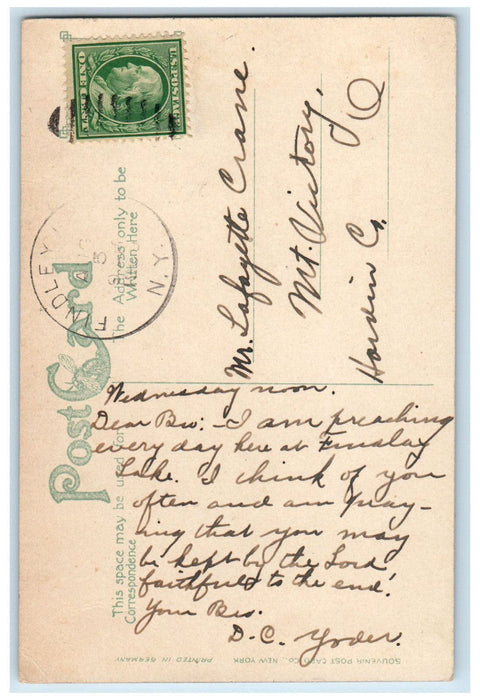 U.S. POSTAGE
ONE CENT
FINDLEY
5
N.Y.
Post Card
The Address only to be
Written Here
This space may be used for
Correspondence
Mr. Lafayette Crane.
Mt. Victory,
Hardin Co.
O
Wednesday noon.
Dear Bro:- I am preaching
every day here at Findlay
Lake. I think of you
often and am pray-
ing that you may
be kept by the Lord
faithful to the end!
Your Bro.
D. C. Yoder.
SOUVENIR POST CARD CO., NEW YORK. PRINTED IN GERMANY